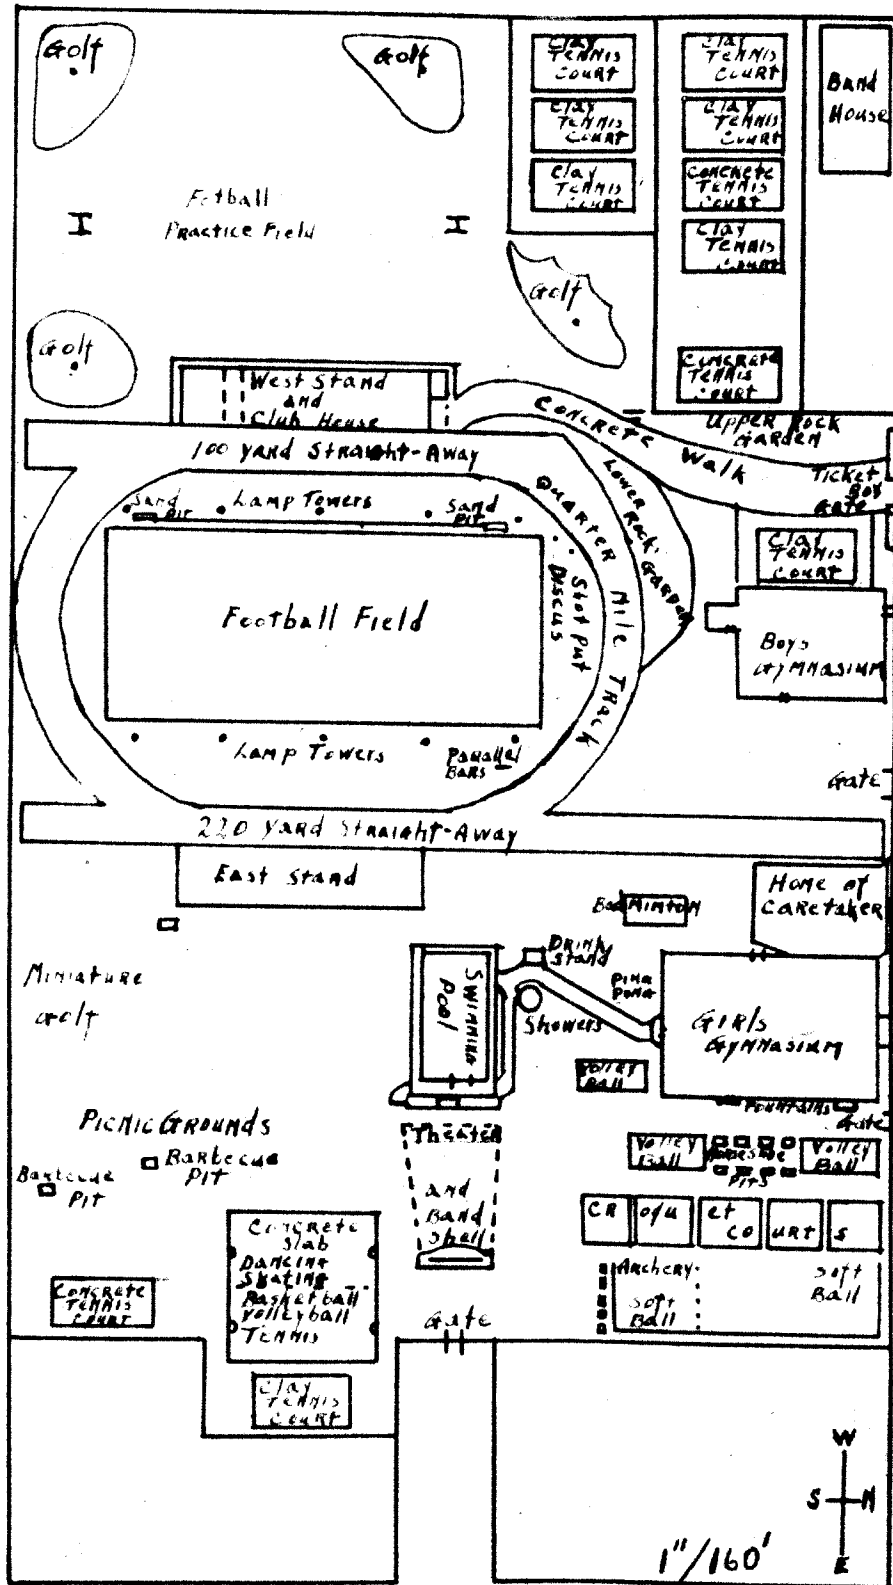 Golf
Golf
Clay
Tennis
Court
Clay
Tennis
Court
Band
House
Clay
Tennis
Court
Clay
Tennis
Court
Clay
Tennis
Court
Concrete
Tennis
Court
Clay
Tennis
Court
Fotball
Practice Field
Golf
Golf
Concrete
Tennis
Court
West Stand
and
Club House
Concrete
Walk
Upper Rock
Garden
Ticket
Box
Gate
100 Yard Straight-Away
Lower Rock Garden
Sand
Pit
Lamp Towers
Sand
Pit
Quarter Mile Track
Clay
Tennis
Court
Shot Put
Discus
Football Field
Boys
Gymnasium
Lamp Towers
Parallel
Bars
Gate
220 Yard Straight-Away
East Stand
Home of
Caretaker
Badminton
Drink
Stand
Swimming
Pool
Ping
Pong
Miniature
Golf
Showers
Girls
Gymnasium
Volley
Ball
Fountains
Gate
Picnic Grounds
Barbecue
Pit
Barbecue
Pit
Theater
and
Band
Shell
Volley
Ball
Horseshoe
Pits
Volley
Ball
Croquet Courts
Concrete
Slab
Dancing
Skating
Basketball
Volleyball
Tennis
Archery
Soft
Ball
Soft
Ball
Concrete
Tennis
Court
Gate
Clay
Tennis
Court
W
S N
E
1"/160'